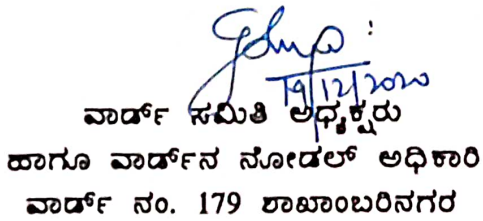 19/12/2020
ವಾರ್ಡ್ ಸಮಿತಿ ಅಧ್ಯಕ್ಷರು
ಹಾಗೂ ವಾರ್ಡ್‌ನ ನೋಡಲ್ ಅಧಿಕಾರಿ
ವಾರ್ಡ್ ನಂ. 179 ಶಾಖಾಂಬರಿನಗರ